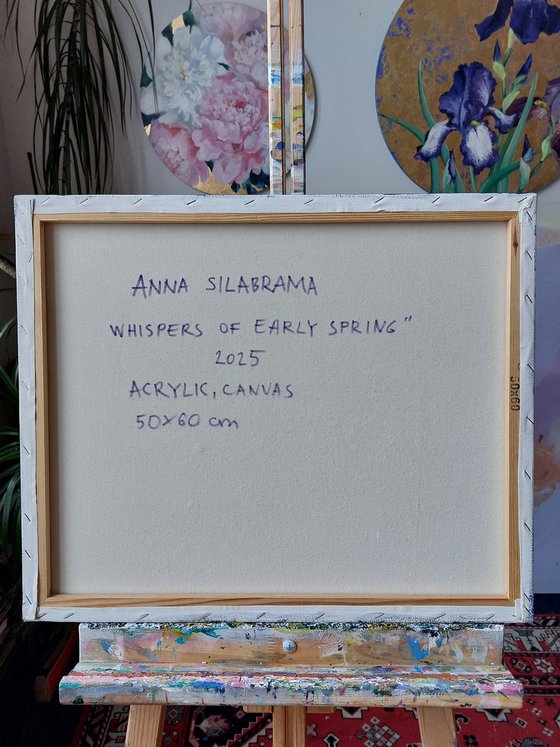 ANNA SILABRAMA
WHISPERS OF EARLY SPRING"
2025
ACRYLIC, CANVAS
50x60 cm
50x60